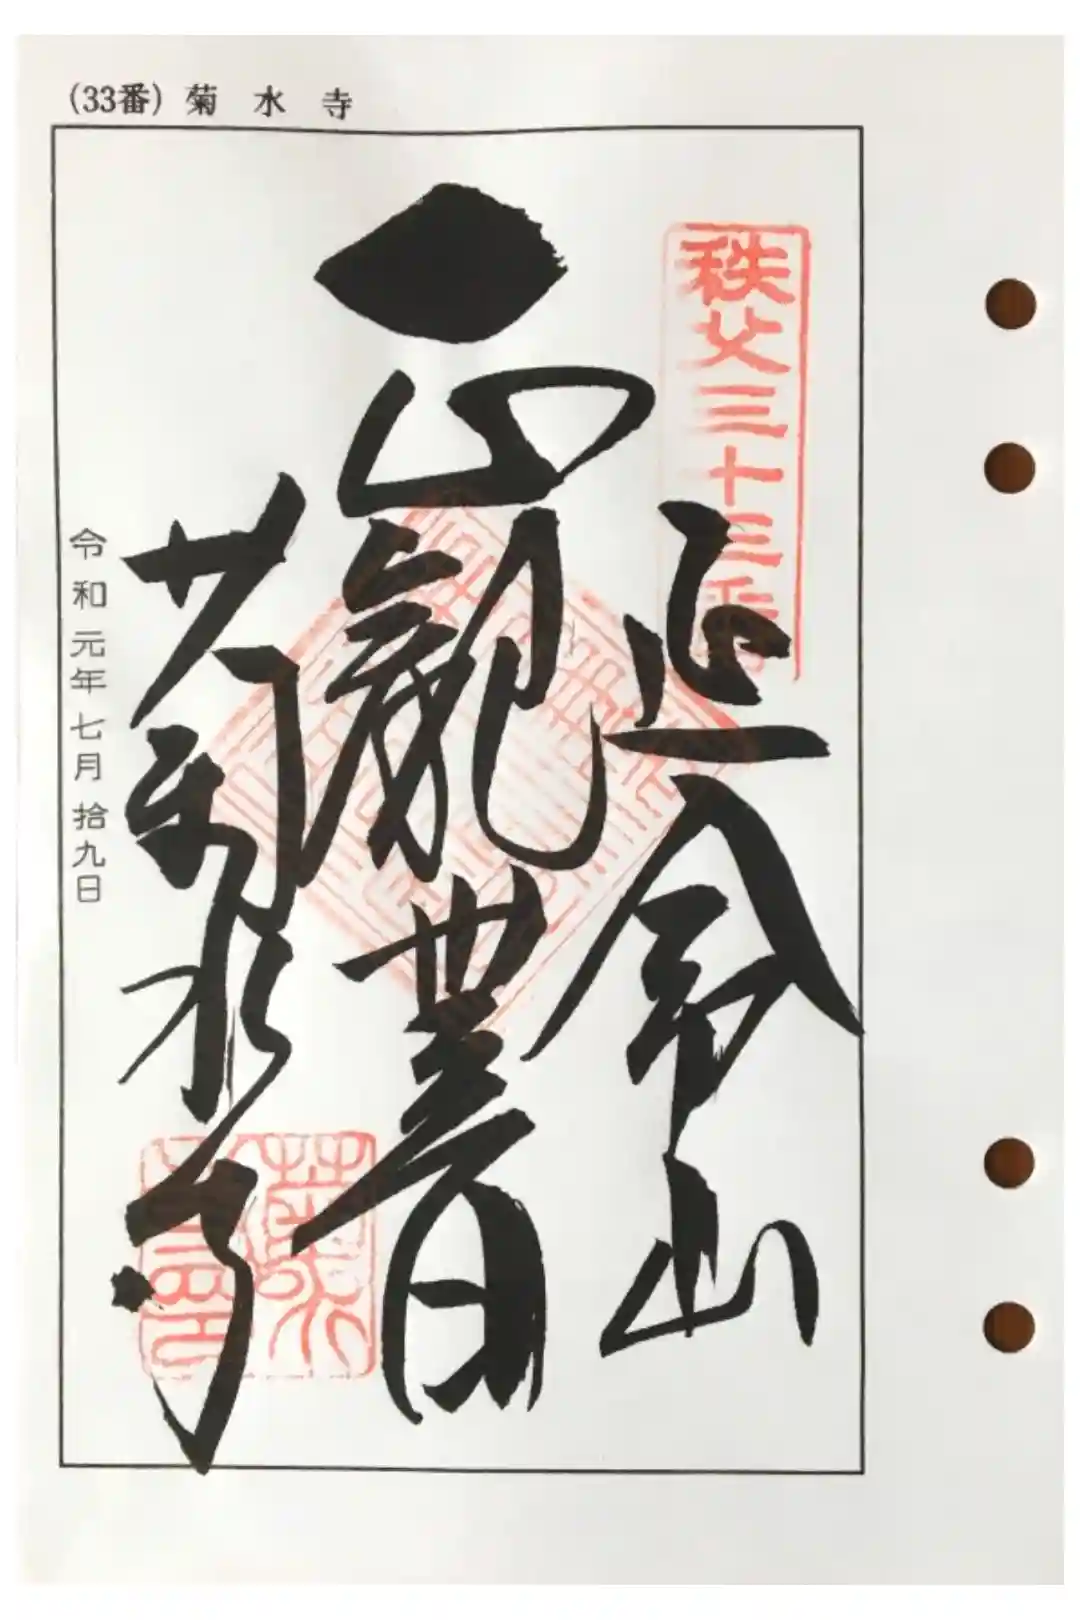 (33番) 菊水寺
秩父三十三番
延命山
正観世音
菊水寺
令和元年七月拾九日